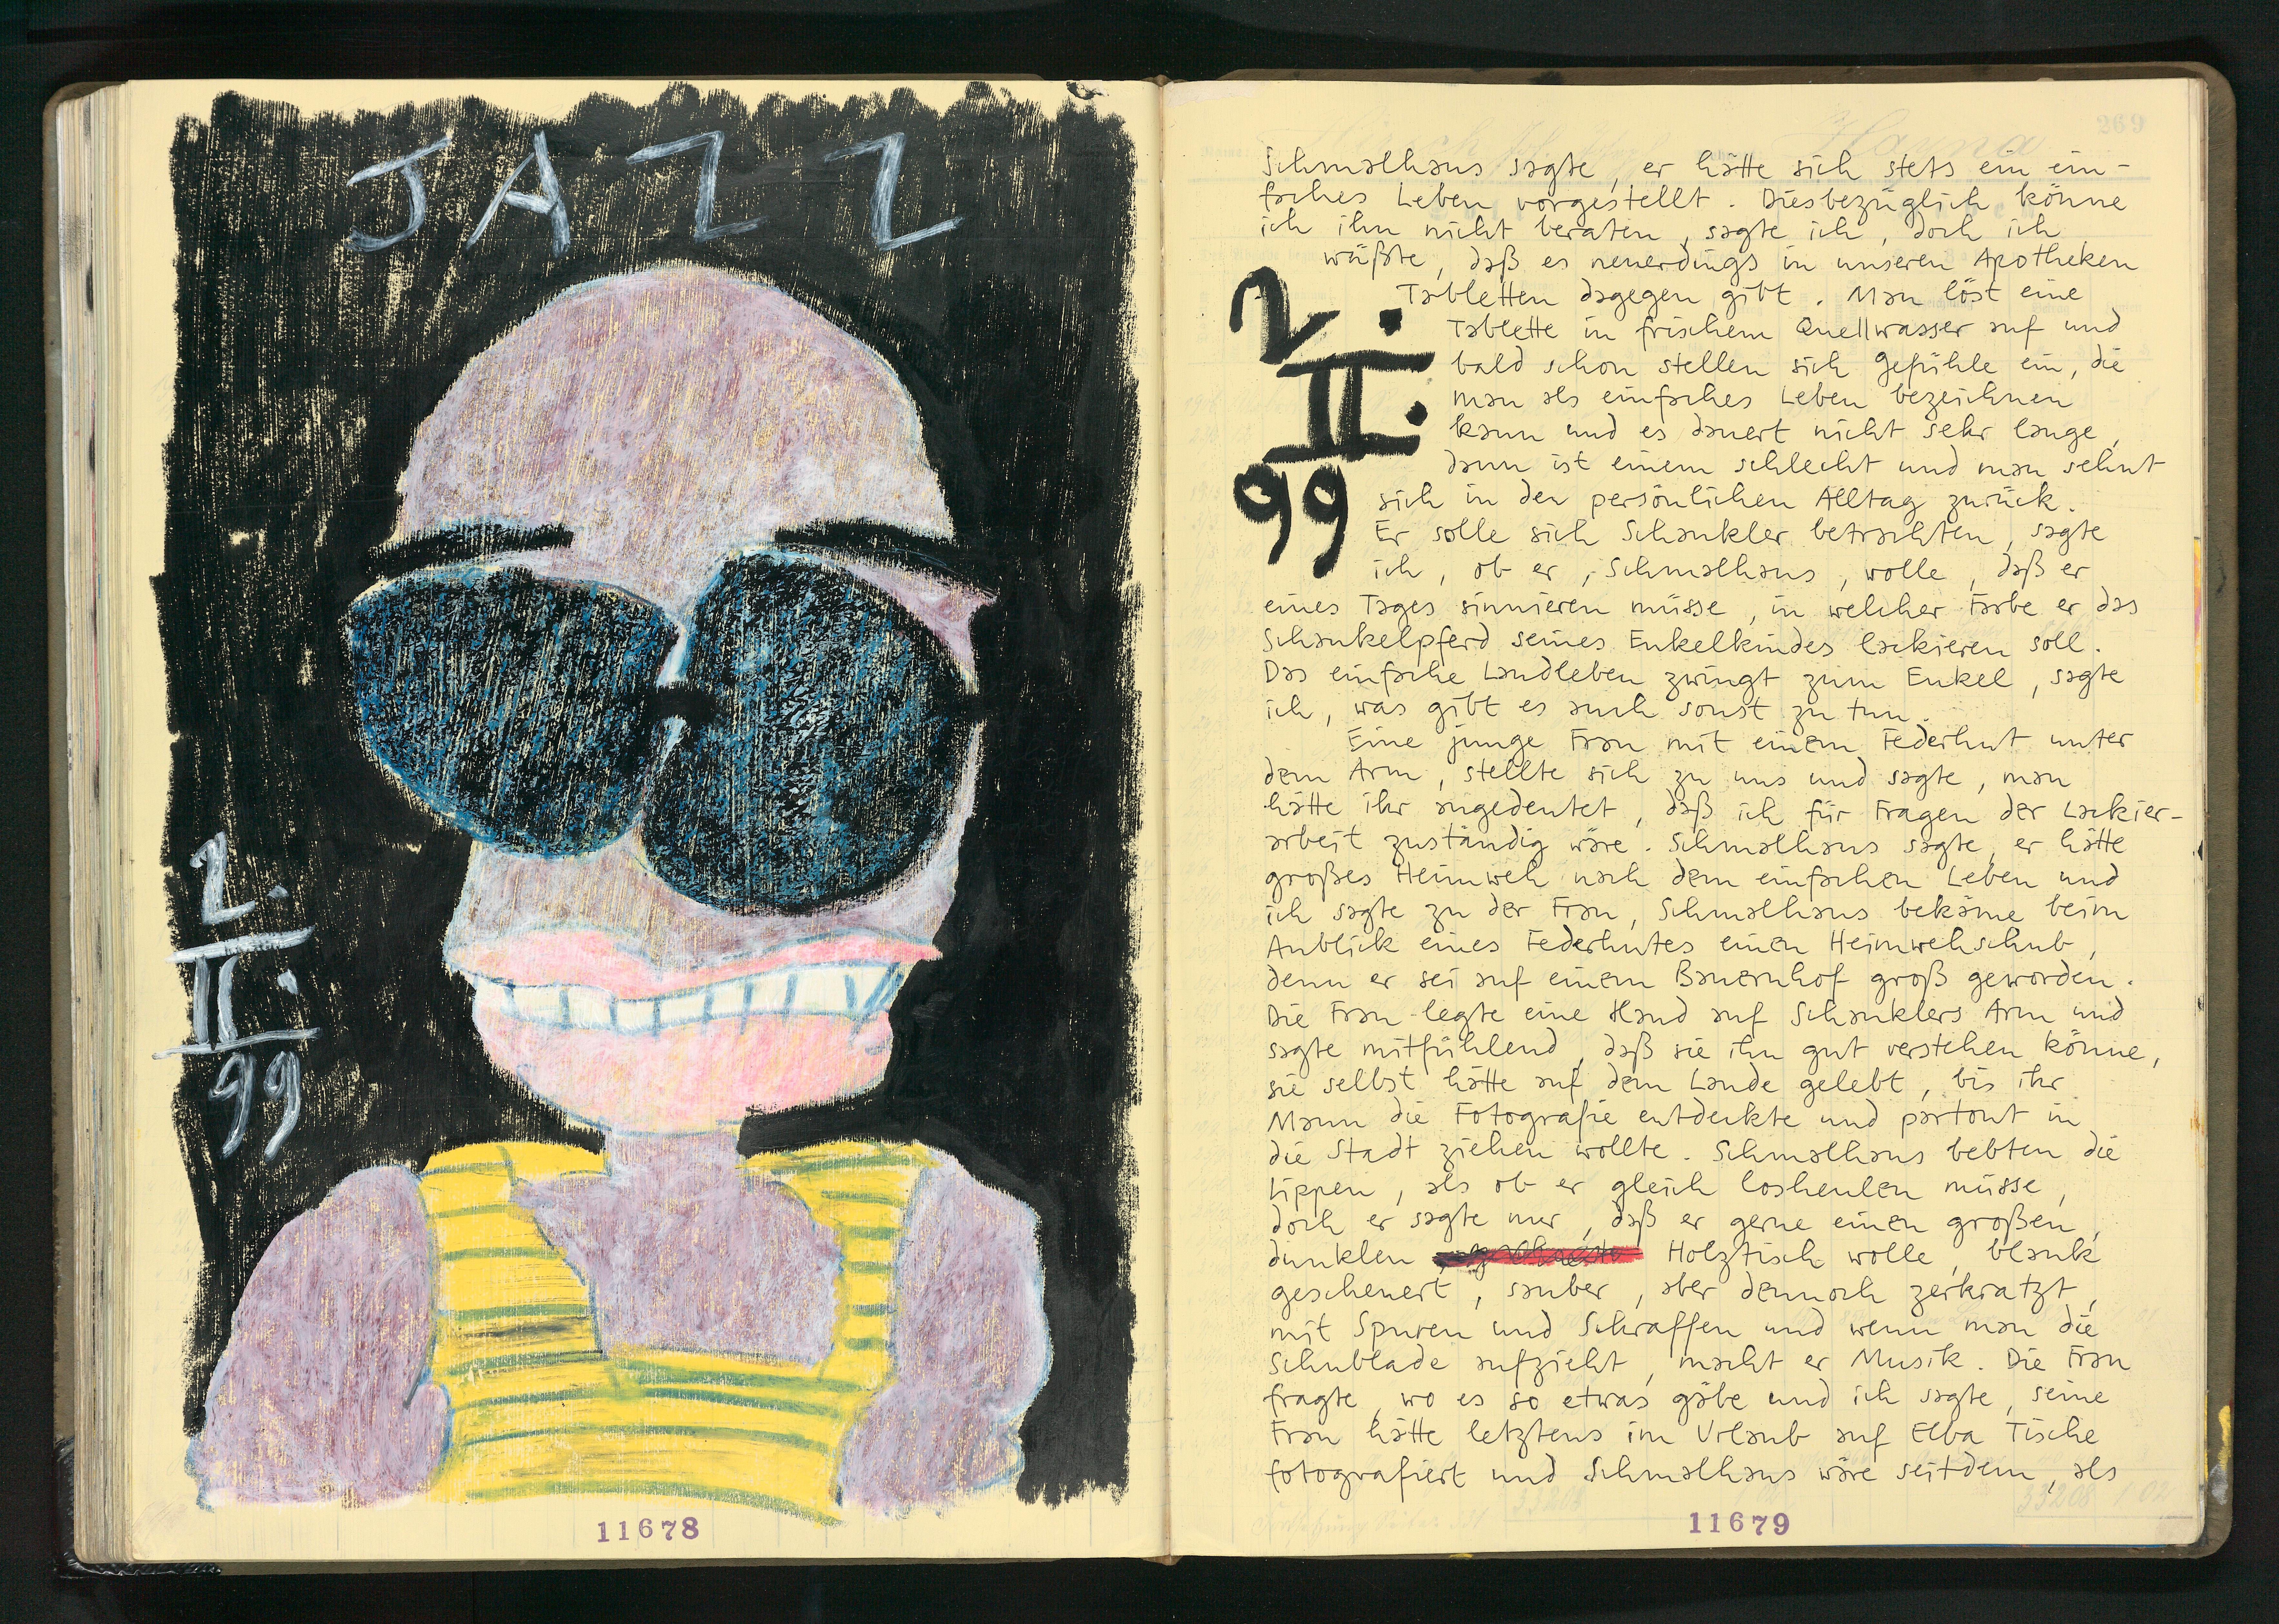 JAZZ
2.
II.
99
11678
269
Schmalhaus sagte, er hätte sich stets ein ein-
faches Leben vorgestellt. Diesbezüglich könne
ich ihn nicht beraten, sagte ich, doch ich
wüßte, daß es neuerdings in unseren Apotheken
Tabletten dagegen gibt. Man löst eine
Tablette in frischem Quellwasser auf und
bald schon stellen sich Gefühle ein, die
man als einfaches Leben bezeichnen
kann und es dauert nicht sehr lange,
dann ist einem schlecht und man sehnt
sich in den persönlichen Alltag zurück.
Er solle sich Schankler betrachten, sagte
ich, ob er, Schmalhaus, wolle, daß er
eines Tages sinnieren müsse, in welcher Farbe er das
Schaukelpferd seines Enkelkindes lackieren soll.
Das einfache Landleben zwingt zum Enkel, sagte
ich, was gibt es auch sonst zu tun.
2.
II.
99
Eine junge Frau mit einem Federhut unter
dem Arm, stellte sich zu uns und sagte, man
hätte ihr angedeutet, daß ich für Fragen der Lackier-
arbeit zuständig wäre. Schmalhaus sagte, er hätte
großes Heimweh nach dem einfachen Leben und
ich sagte zu der Frau, Schmalhaus bekäme beim
Anblick eines Federhutes einen Heimwehschub,
denn er sei auf einem Bauernhof groß geworden.
Die Frau legte eine Hand auf Schanklers Arm und
sagte mitfühlend, daß sie ihn gut verstehen könne,
sie selbst hätte auf dem Lande gelebt, bis ihr
Mann die Fotografie entdeckte und partout in
die Stadt ziehen wollte. Schmalhaus bebten die
Lippen, als ob er gleich losheulen müsse,
doch er sagte nur, daß er gerne einen großen,
dunklen Holztisch wolle, blank
gescheuert, sauber, aber dennoch zerkratzt,
mit Spuren und Schraffen und wenn man die
Schublade aufzieht, macht er Musik. Die Frau
fragte, wo es so etwas gäbe und ich sagte, seine
Frau hätte letztens im Urlaub auf Elba Tische
fotografiert und Schmalhaus wäre seitdem, als
11679